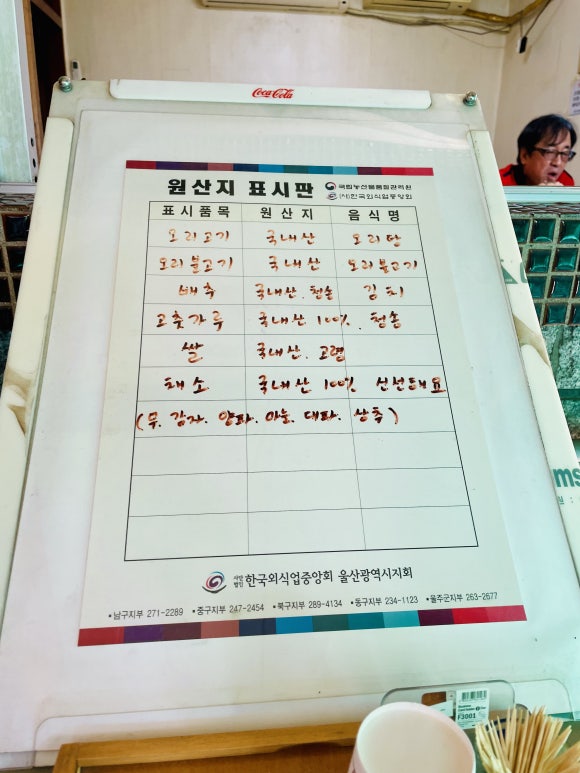 Coca-Cola
원산지 표시판 국립농산물품질관리원
(사)한국외식업중앙회
표시품목 원산지 음식명
오리고기 국내산 오리탕
오리불고기 국내산 오리불고기
배추 국내산. 청송 김치
고춧가루 국내산 100%. 청송
쌀 국내산. 고령
채소 국내산 100% 신선해요
(무. 감자. 양파. 마늘. 대파. 상추)
사단법인 한국외식업중앙회 울산광역시지회
•남구지부 271-2289 •중구지부 247-2454 •북구지부 289-4134 •동구지부 234-1123 •울주군지부 263-2677
F3001